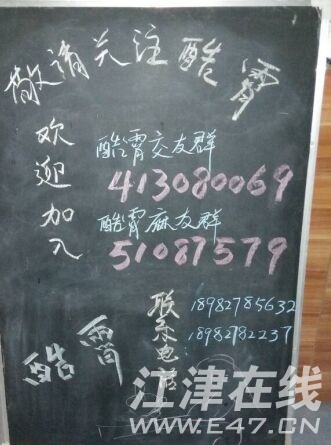 敬请关注酷霄
欢迎加入
酷霄交友群
413080069
酷霄麻友群
51087579
联系电话
18982785632
18982182237
酷霄
江津在线
WWW.E47.CN